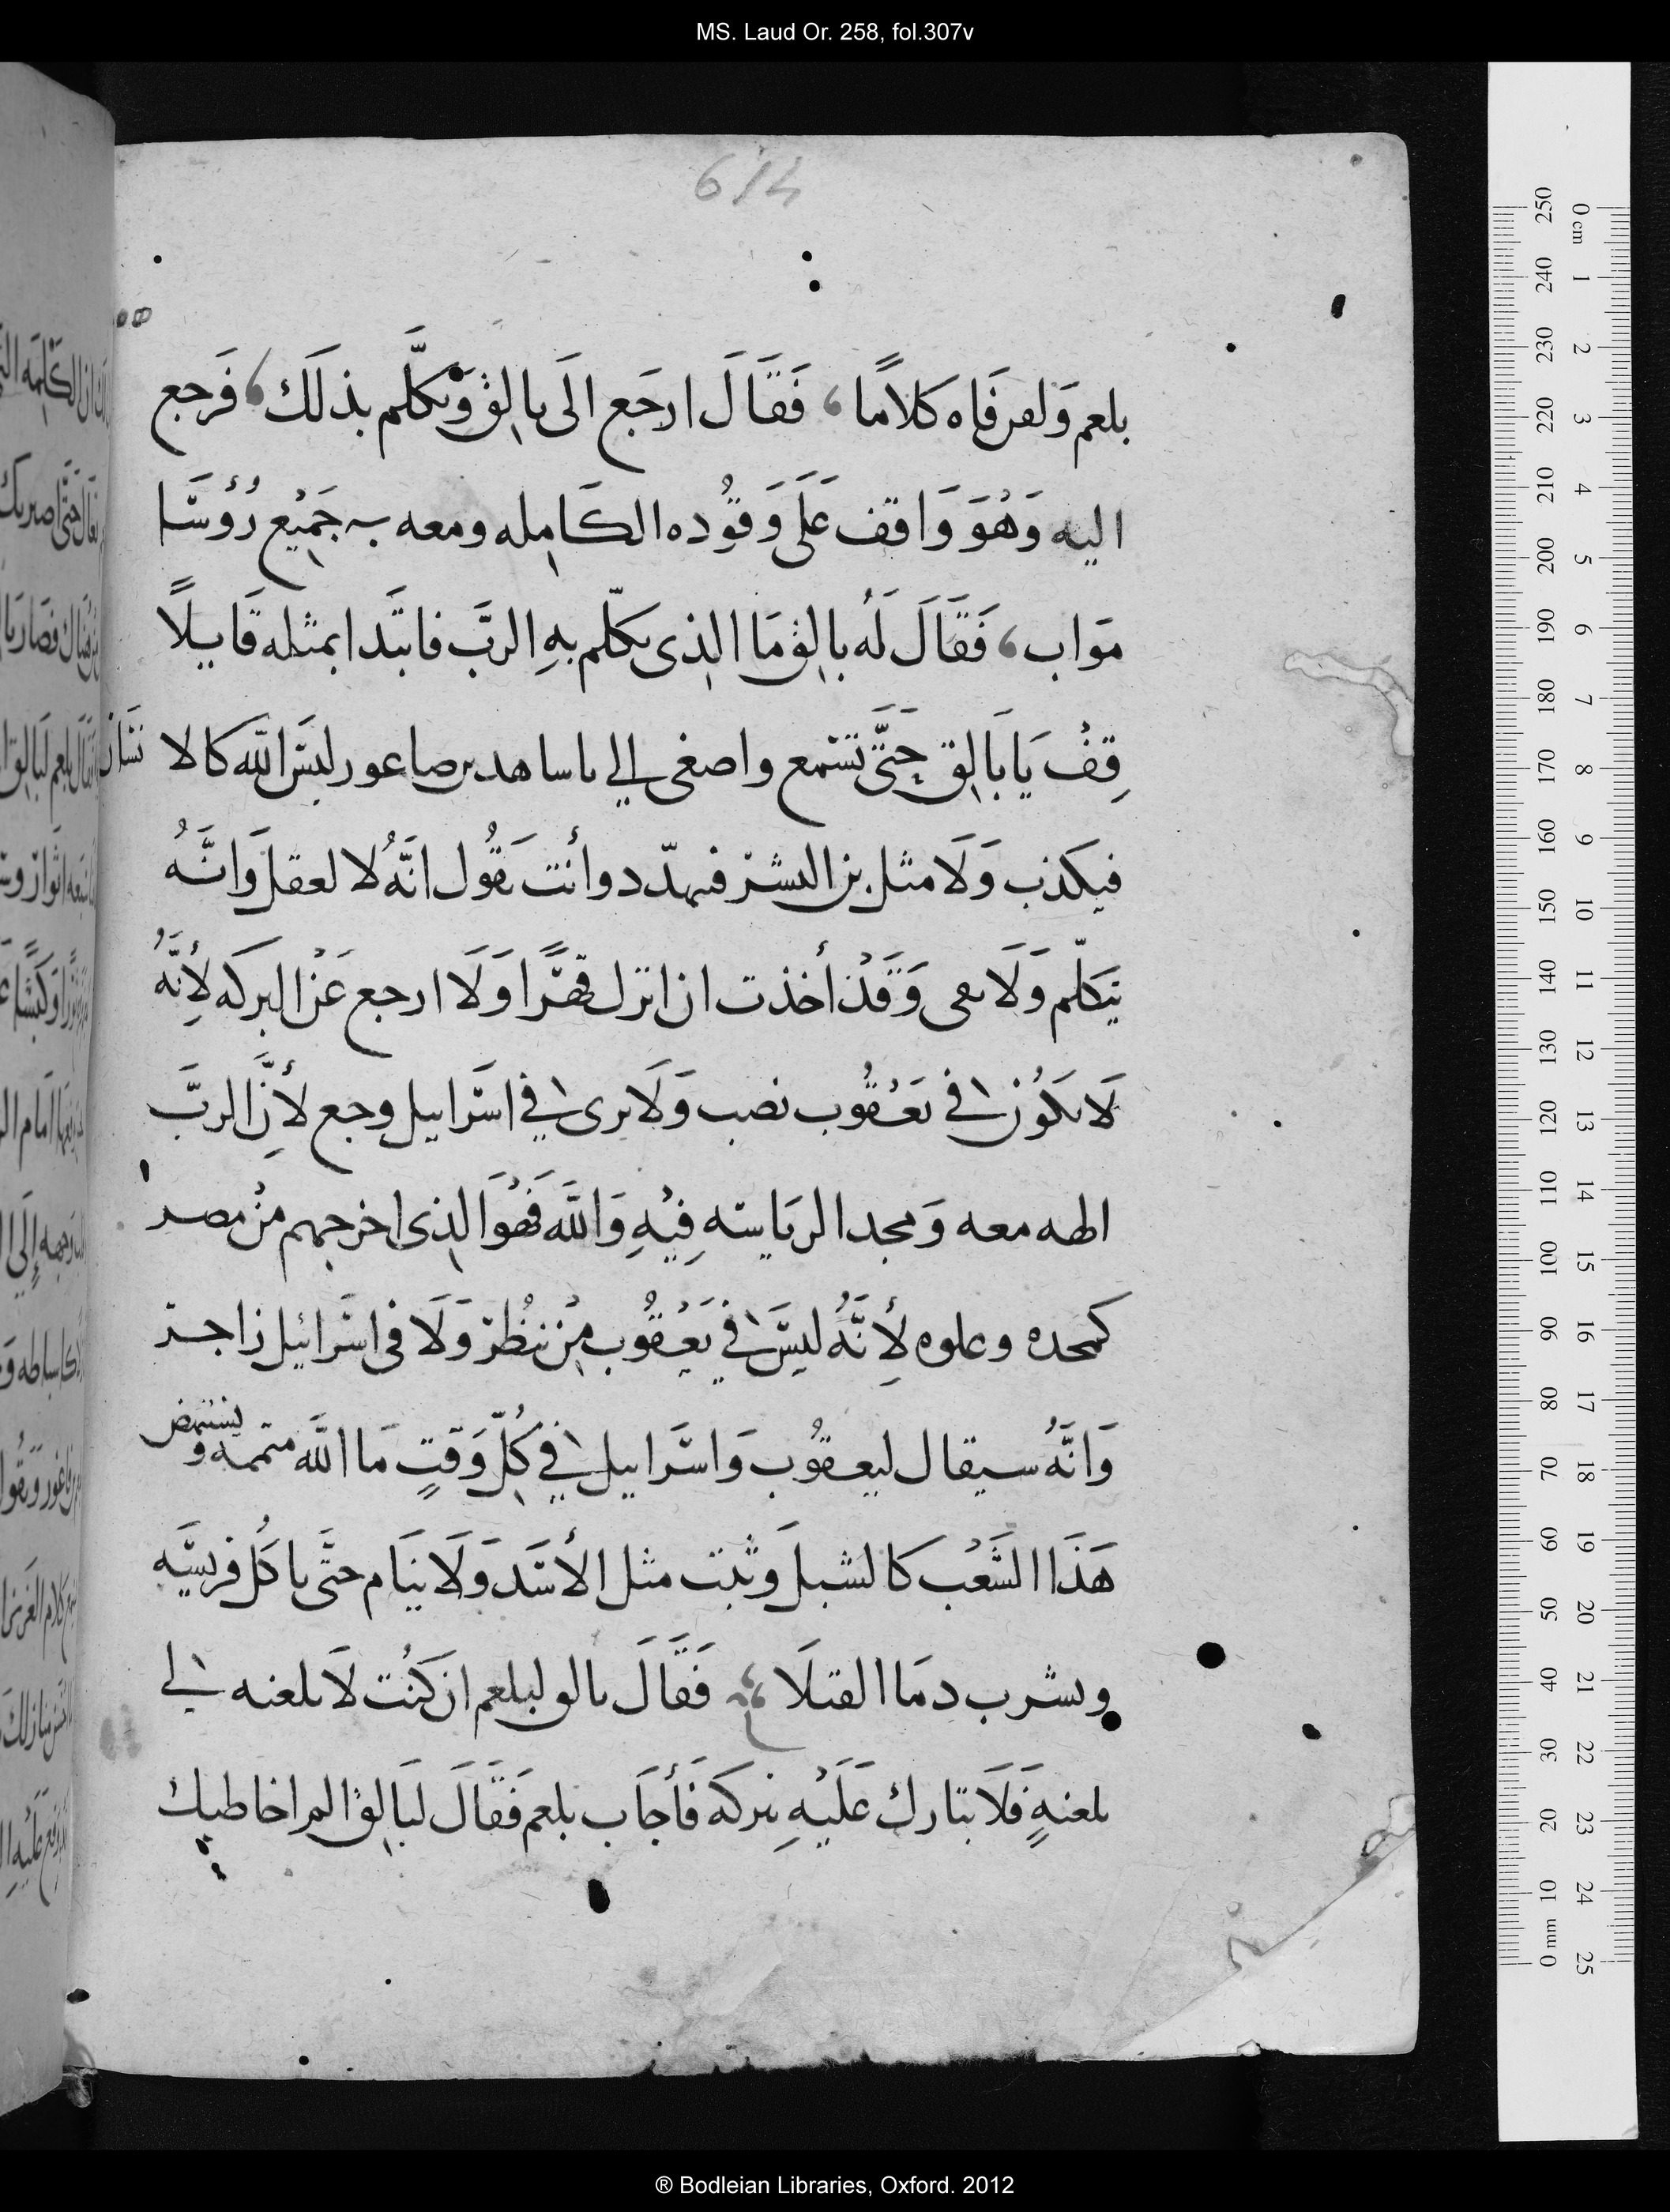 MS. Laud Or. 258, fol.307v
614
بلعم ولقن فاه كلاما، فَقَالَ ارجَع الَى بالِق وَتكلَّم بذلَك، فَرجع
اليه وَهُوَ وَاقف عَلَى وَقُوده الكَامِله ومعه به جَمِيْع رُؤسَا
موَاب، فَقَالَ لَهُ بالِق مَا الذى تكلّم بهِ الربَّ فابتَدا بمثله قَايلاً
قِفْ يَا بَالِق حَتَّى تسَمع واصغى الي ياساهد بن صاعور ليسَ اللّه كالانسَان
فيكذب وَلَا مثل بن البشر فيهدّد وأنت تَقُول انَّهُ لا لعقل وَانَّهُ
يتَكلّم وَلَا يعى وَقَدْ أخذت ان انزل قهرًا وَلَا ارجع عَن البركه لأِنَّهُ
لَا يَكُون في يَعْقُوب نصب وَلَا يرى في اسَرايل وجع لأنَّ الربَّ
الهه معه وَمجد الريَاسه فِيْهِ وَاللَّه فَهُوَ الذى اخرجهم مِنْ مصر
كمجده وعلوه لأِنَّهُ ليسَ في يَعْقُوب مِن ينظُر وَلَا فى اسَرائيل زاجر
وَانَّهُ سيقال ليعقُوب وَاسَرايل في كُلّ وَقتٍ مَا اللَّه متممه ويستنهض
هَذَا الشَعْب كالشبل وَيثبت مثل الأسَد وَلَا ينَام حتَّى ياكُل فريسَه
ويشرب دمَا القتلَا فَقَالَ بالق لبلعم ان كُنْت لَا بلعنه لي
بلعنهٍ فَلَا تبارك عَلَيْهِ ببركَه فَأجَاب بلعم فَقَالَ لبَالِق الم اخاطبك
® Bodleian Libraries, Oxford. 2012